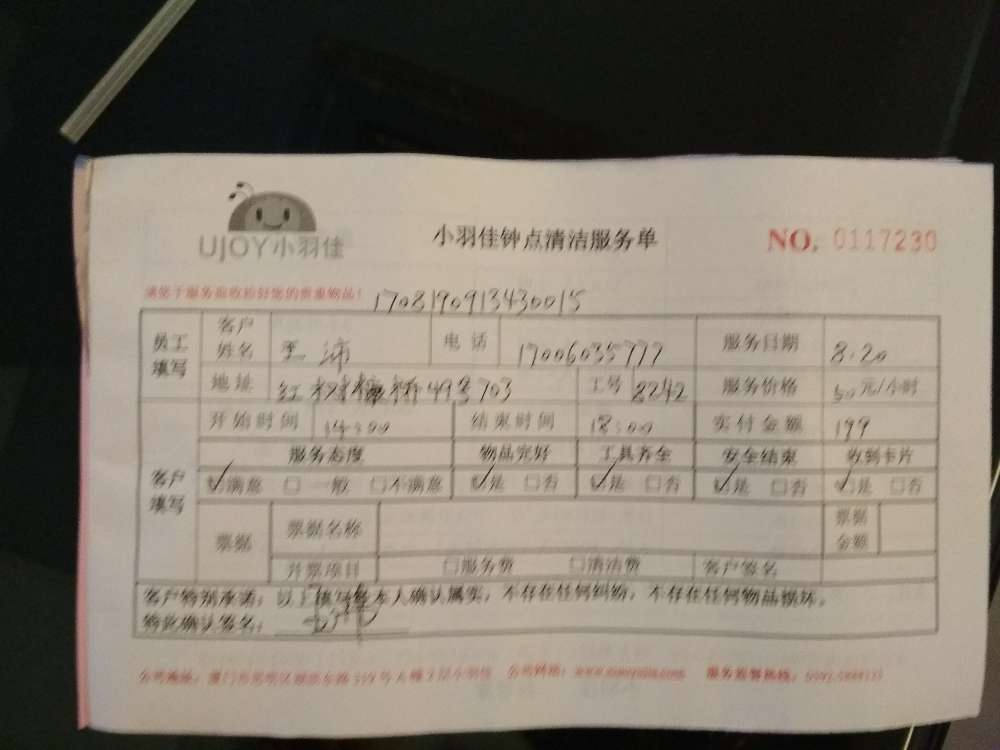 UJOY小羽佳
小羽佳钟点清洁服务单
NO. 0117230
请您于服务前收拾好您的贵重物品!
1708190913430015
员工填写 客户姓名 王沛 电话 17006035777 服务日期 8.20
地址 红 桥49号703 工号 8242 服务价格 50元/小时
客户填写 开始时间 14:00 结束时间 18:00 实付金额 199
服务态度 物品完好 工具齐全 安全结束 收到卡片
☑满意 □一般 □不满意 ☑是 □否 ☑是 □否 ☑是 □否 ☑是 □否
票据 票据名称 票据金额
开票项目 □服务费 □清洁费 客户签名
客户特别承诺:以上填写经本人确认属实,不存在任何纠纷,不存在任何物品损坏。
特此确认签名:
公司地址:厦门市思明区 公司网址: 服务监督热线: